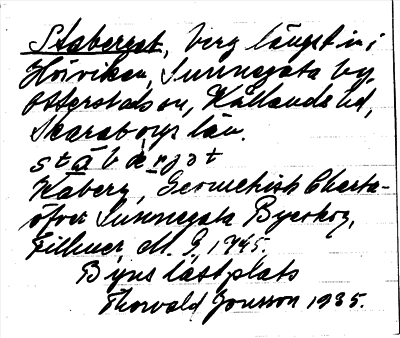 Staberget, berg längst in i
Höviken, Sunnegata by,
Otterstads sn, Kållands hd,
Skaraborgs län.
stábærjət
Kåberg, Geometrisk Charta
öfver Sunnegata Byeskog,
Fillmer, M. G, 1745.
Byns lastplats
Thorvald Jonsson 1935.